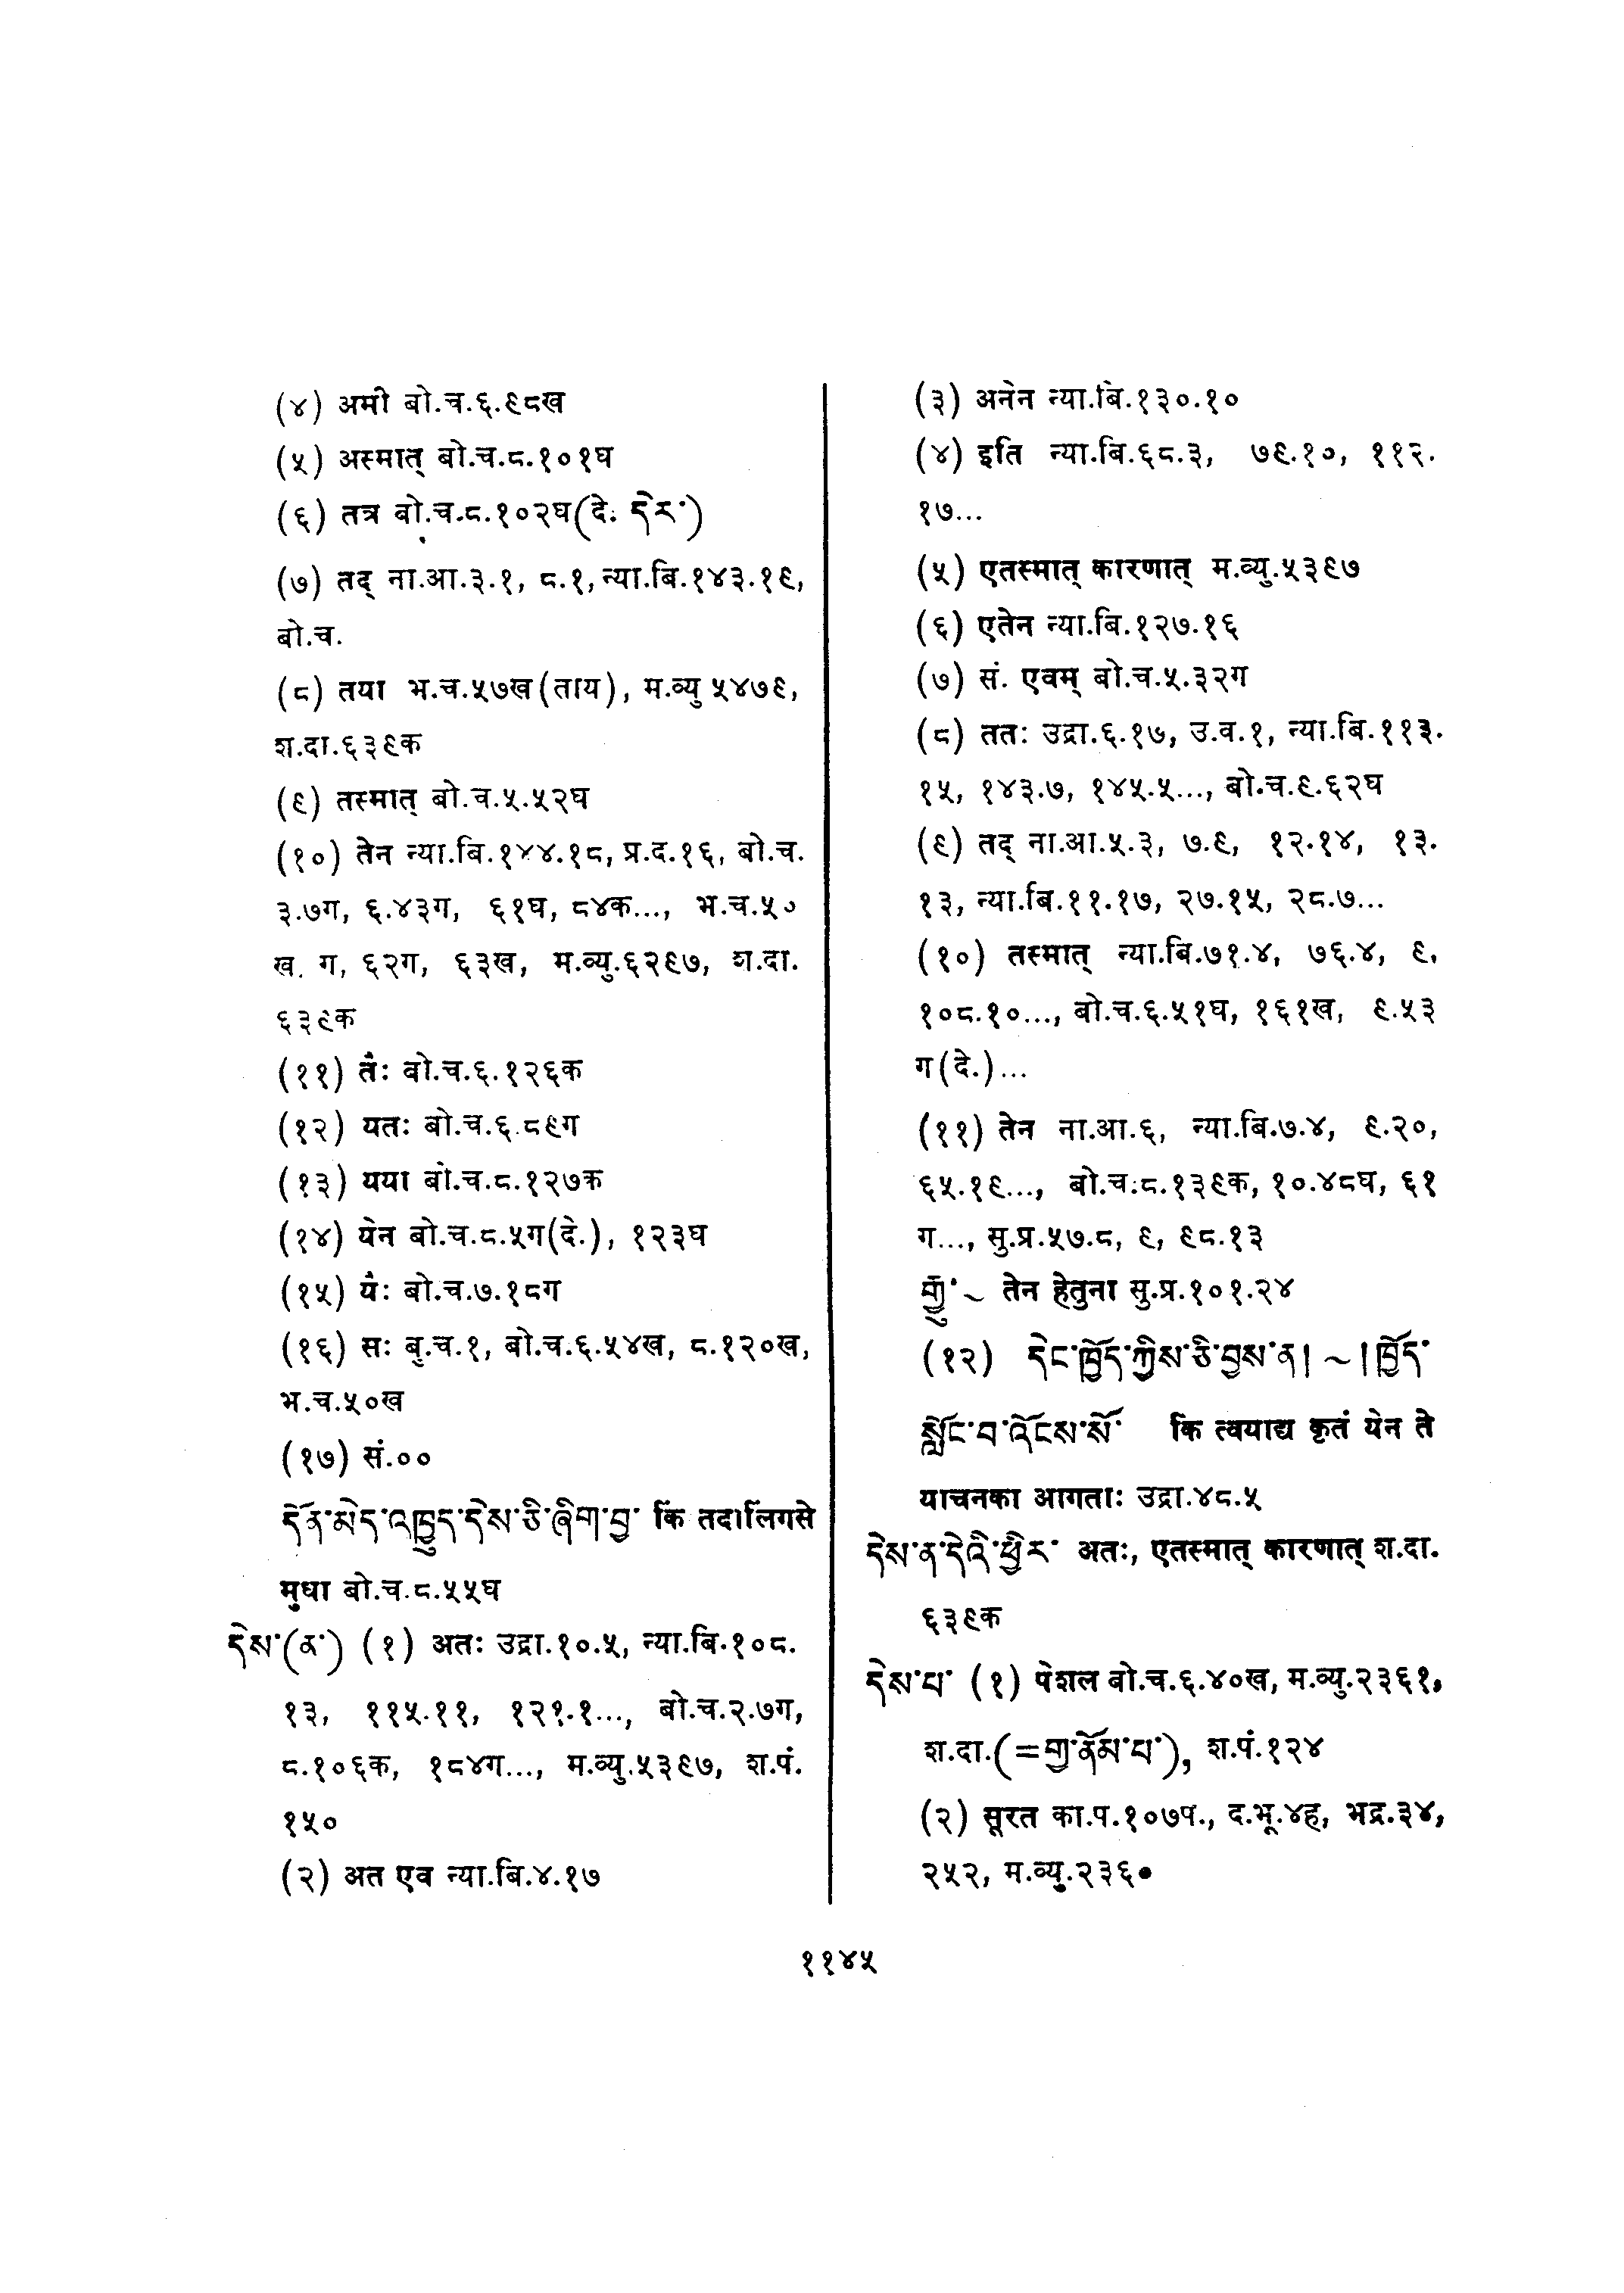 (४) अमी बो.च.६.९८ख
(५) अस्मात् बो.च.८.१०१घ
(६) तत्र बो.च.८.१०२घ(दे. དེར་)
(७) तद् ना.आ.३.१, ८.१, न्या.बि.१४३.१९,
बो.च.
(८) तया भ.च.५७ख(ताय), म.व्यु ५४७९,
श.दा.६३९क
(९) तस्मात् बो.च.५.५२घ
(१०) तेन न्या.बि.१४४.१८, प्र.द.१६, बो.च.
३.७ग, ६.४३ग, ६१घ, ८४क..., भ.च.५०
ख. ग, ६२ग, ६३ख, म.व्यु.६२९७, श.दा.
६३९क
(११) तैः बो.च.६.१२६क
(१२) यतः बो.च.६.८९ग
(१३) यया बो.च.८.१२७क
(१४) येन बो.च.८.५ग(दे.), १२३घ
(१५) यैः बो.च.७.१८ग
(१६) सः बु.च.१, बो.च.६.५४ख, ८.१२०ख,
भ.च.५०ख
(१७) सं.००
དོན་མེད་འཁྱུད་དེས་ཅི་ཞིག་བྱ་ किं तदालिंगसे
मुधा बो.च.८.५५घ
དེས་(ན་) (१) अतः उद्रा.१०.५, न्या.बि.१०८.
१३, ११५.११, १२१.१..., बो.च.२.७ग,
८.१०६क, १८४ग..., म.व्यु.५३९७, श.पं.
१५०
(२) अत एव न्या.बि.४.१७
(३) अनेन न्या.बि.१३०.१०
(४) इति न्या.बि.६८.३, ७९.१०, ११२.
१७...
(५) एतस्मात् कारणात् म.व्यु.५३९७
(६) एतेन न्या.बि.१२७.१६
(७) सं. एवम् बो.च.५.३२ग
(८) ततः उद्रा.६.१७, उ.व.१, न्या.बि.११३.
१५, १४३.७, १४५.५..., बो.च.९.६२घ
(९) तद् ना.आ.५.३, ७.९, १२.१४, १३.
१३, न्या.बि.११.१७, २७.१५, २८.७...
(१०) तस्मात् न्या.बि.७१.४, ७६.४, ९,
१०८.१०..., बो.च.६.५१घ, १६१ख, ९.५३
ग(दे.)...
(११) तेन ना.आ.६, न्या.बि.७.४, ९.२०,
६५.१९..., बो.च.८.१३९क, १०.४८घ, ६१
ग..., सु.प्र.५७.८, ९, ९८.१३
རྒྱུ་ ~ तेन हेतुना सु.प्र.१०१.२४
(१२) དེང་ཁྱོད་ཀྱིས་ཅི་བྱས་ན། ~ །ཁྱོད་
སློང་བ་འོངས་སོ་ कि त्वयाद्य कृतं येन ते
याचनका आगताः उद्रा.४८.५
དེས་ན་དེའི་ཕྱིར་ अतः, एतस्मात् कारणात् श.दा.
६३९क
དེས་པ་ (१) पेशल बो.च.६.४०ख, म.व्यु.२३६१,
श.दा.(=གྱ་ནོམ་པ་), श.पं.१२४
(२) सूरत का.प.१०७प., द.भू.४ह, भद्र.३४,
२५२, म.व्यु.२३६०
११४५